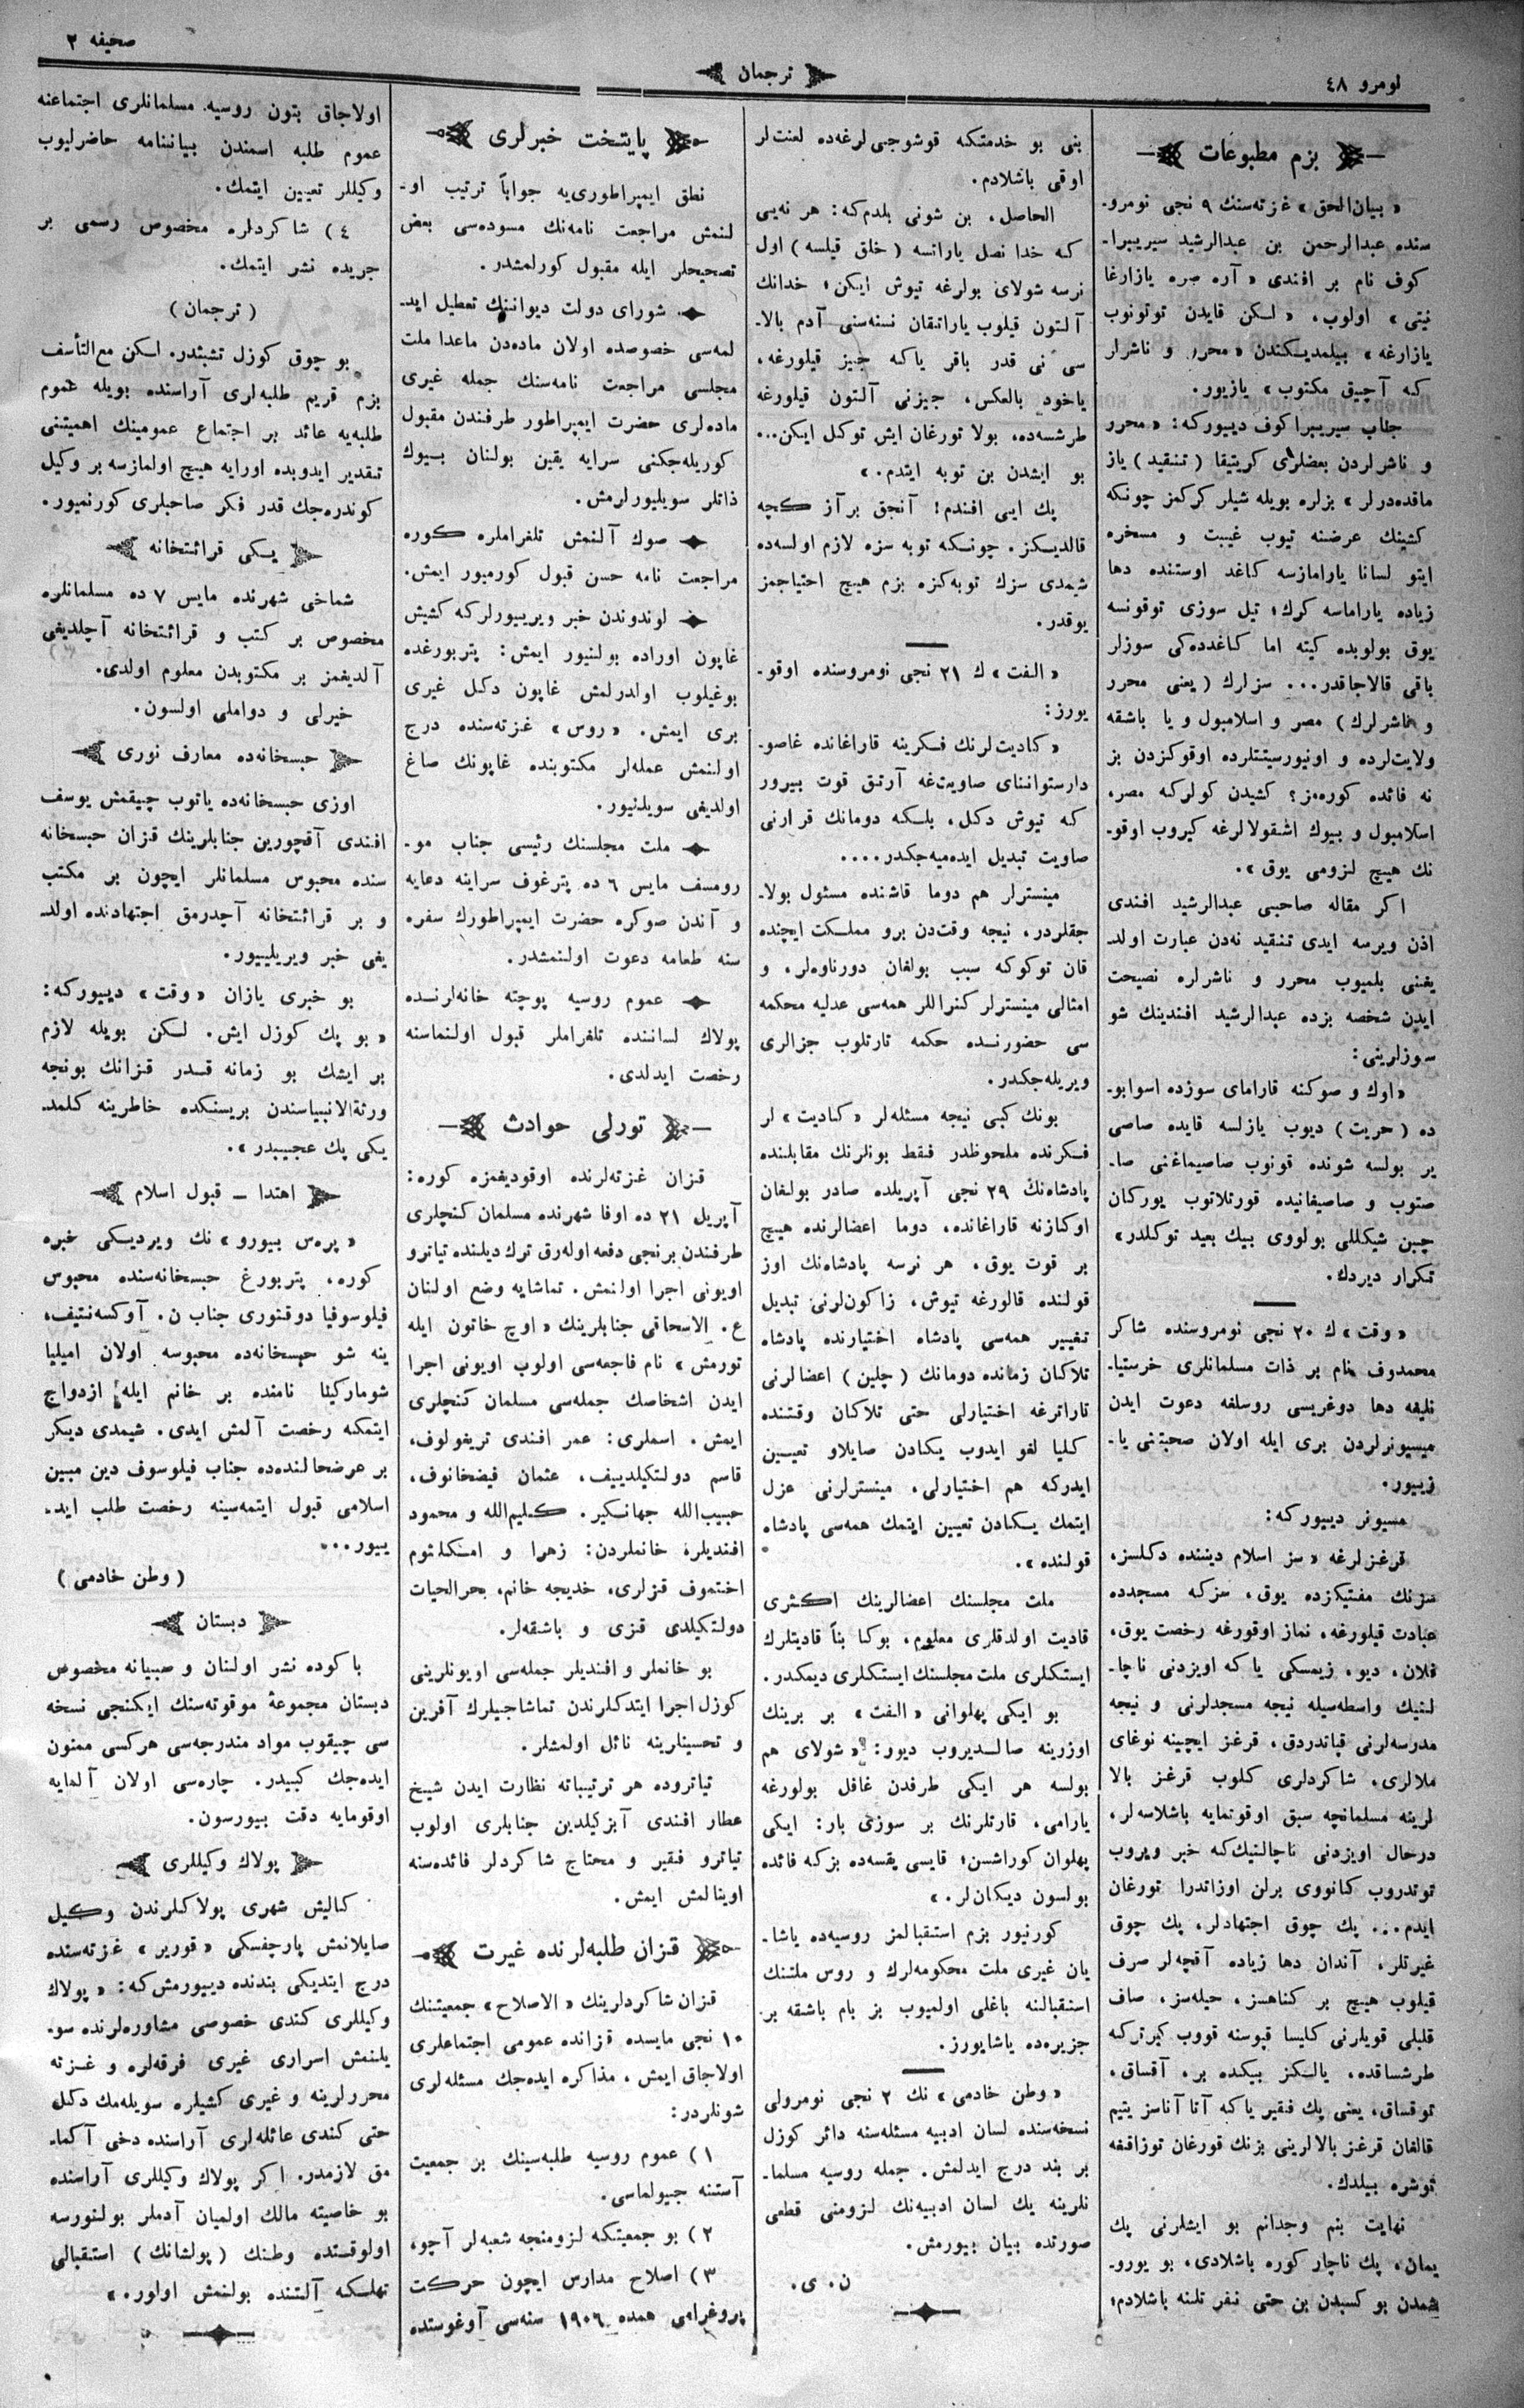 نومرو ٤٨
ترجمان
صحیفه ٢
بزم مطبوعات
« بیان‌الحق » غزته‌سنك ٩ نجی نومرو-
سنده عبدالرحمن بن عبدالرشید سیریبرا-
كوف نام بر افندی « آره صره یازارغا
نیتی » اولوب، « لكن قایدن توتونوب
یازارغه » بیلمدیكندن « محرر و ناشرلر
كه آچیق مكتوب » یازیور.
جناب سیریبراكوف دییوركه: « محرر
و ناشرلردن بعضلری كریتیقا (تنقید) یاز
ماقده‌درلر » بزلره بویله شیلر كركمز چونكه
كشینك عرضنه تیوب غیبت و مسخره
ایتو لسانا یارامازسه كاغد اوستنده دها
زیاده یاراماسه كرك؛ تیل سوزی توقونسه
یوق بولوبده كیته اما كاغدده‌كی سوزلر
باقی قالاجاقدر... سزلرك (یعنی محرر
و ناشرلرك) مصر و اسلامبول و یا باشقه
ولایت‌لرده و اونیورسیتتلرده اوقوكزدن بز
نه فائده كوره‌مز؟ كشیدن كولركه مصر،
اسلامبول و بیوك اشقولالرغه كیروب اوقو-
نك هیچ لزومی یوق ».
اكر مقاله صاحبی عبدالرشید افندی
اذن ویرسه ایدی تنقید نه‌دن عبارت اولد-
یغنی بلمیوب محرر و ناشرلره نصیحت
ایدن شخصه بزده عبدالرشید افندینك شو
سوزلرینی:
« اوك و صوكنه قارامای سوزده اسوابو-
ده (حریت) دیوب یازلسه قایده صاصی
یر بولسه شونده قونوب صاصیماغنی صا-
صتوب و صاصیغانیده قورتلاتوب یوركان
چبن شیكللی بولووی بیك بعید توكلدر»
تكرار دیردك.
« وقت » ك ٢٠ نجی نومروسنده شاكر
محمدوف نام بر ذات مسلمانلری خرستیا-
نلیغه دها دوغریسی روسلغه دعوت ایدن
میسیونرلردن بری ایله اولان صحبتنی یا-
زییور.
مسیونر دییوركه:
قرغزلرغه « سز اسلام دیننده دكلسز،
سزنك مفتیكزده یوق، سزكه مسجدده
عبادت قیلورغه، نماز اوقورغه رخصت یوق،
فلان، دیو، زیمسكی یاكه اویزدنی ناچا-
لنیك واسطه‌سیله نیجه مسجدلرنی و نیجه
مدرسه‌لرنی قپاندردق، قرغز ایچینه نوغای
ملالری، شاكردلری كلوب قرغز بالا
لرینه مسلمانچه سبق اوقوتمایه باشلاسه‌لر،
درحال اویزدنی ناچالنیك‌كه خبر ویروب
توتدروب كانووی برلن اوزاتدرا تورغان
ایدم... پك چوق اجتهادلر، پك چوق
غیرتلر، آندان دها زیاده آقچه‌لر صرف
قیلوب هیچ بر كناهسز، حیله‌سز، صاف
قلبلی قویلرنی كلیسا قپوسنه قووب كیرتركه
طرشساقده، یالكز بیكده بر، آقساق،
توقساق، یعنی پك فقیر یاكه آتا آناسز یتیم
قالغان قرغز بالالرینی بزنك قورغان توزاقغه
توشره بیلدك.
نهایت بنم وجدانم بو ایشلرنی پك
یمان، پك ناچار كوره باشلادی، بو یورو-
شمدن بو كسبدن بن حتی نفر تلنه باشلادم؛
بنی بو خدمتكه قوشوجی‌لرغه‌ده لعنت‌لر
اوقی باشلادم.
الحاصل، بن شونی بلدم‌كه: هر نه‌یی
كه خدا نصل یارانسه (خلق قیلسه) اول
نرسه شولای بولرغه تیوش ایكن؛ خدانك
آلتون قیلوب یاراتقان نسنه‌سنی آدم بالا-
سی نی قدر باقر یاكه جیز قیلورغه،
یاخود بالعكس، جیزنی آلتون قیلورغه
طرشسه‌ده، بولا تورغان ایش توكل ایكن...
بو ایشدن بن توبه ایتدم. »
پك ایی افندم! آنجق برآز كچه
قالدیكز. چونكه توبه سزه لازم اولسه‌ده
شیمدی سزك توبه‌كزه بزم هیچ احتیاجمز
یوقدر.
« الفت » ك ٢١ نجی نومروسنده اوقو-
یورز:
« كادیت‌لرنك فكرینه قاراغانده غاصو-
دارستواننای صاویت‌غه آرتق قوت بیرور
كه تیوش دكل، بلكه دومانك قرارنی
صاویت تبدیل ایده‌میه‌جكدر....
مینسترلر هم دوما قاشنده مسئول بولا-
جقلردر، نیجه وقت‌دن برو مملكت ایچنده
قان توكوكه سبب بولغان دورناوه‌لر، و
امثالی مینسترلر كنراللر همه‌سی عدلیه محكمه
سی حضورنده حكمه تارتلوب جزالری
ویریله‌جكدر.
بونك كبی نیجه مسئله‌لر « كادیت » لر
فكرنده ملحوظدر فقط بونلرنك مقابلنده
پادشاه‌نك ٢٩ نجی آپریلده صادر بولغان
اوكازنه قاراغانده، دوما اعضالرنده هیچ
بر قوت یوق، هر نرسه پادشاه‌نك اوز
قولنده قالورغه تیوش، زاكون‌لرنی تبدیل
تغییر همه‌سی پادشاه اختیارنده پادشاه
تلاكان زمانده دومانك (چلین) اعضالرنی
تاراترغه اختیارلی حتی تلاكان وقتنده
كلیا لغو ایدوب یكادن صایلاو تعیین
ایدركه هم اختیارلی، مینسترلرنی عزل
ایتمك یكادن تعیین ایتمك همه‌سی پادشاه
قولنده ».
ملت مجلسنك اعضالرینك اكثری
قادیت اولدقلری معلوم، بوكا بناً قادیتلرك
ایستكلری ملت مجلسنك ایستكلری دیمكدر.
بو ایكی پهلوانی « الفت » بر برینك
اوزرینه صالدیروب دیور: « شولای هم
بولسه هر ایكی طرفدن غافل بولورغه
یارامی، قارتلرنك بر سوزی بار: ایكی
پهلوان كوراشسن؛ قایسی یقسه‌ده بزكه فائده
بولسون دیكان‌لر. »
كورنیور بزم استقبالمز روسیه‌ده یاشا-
یان غیری ملت محكومه‌لرك و روس ملتنك
استقبالنه باغلی اولمیوب بز بام باشقه بر
جزیره‌ده یاشایورز.
« وطن خادمی » نك ٢ نجی نومرولی
نسخه‌سنده لسان ادبیه مسئله‌سنه دائر كوزل
بر بند درج ایدلمش. جمله روسیه مسلما-
نلرینه یك لسان ادبیه‌نك لزومنی قطعی
صورتده بیان بیورمش.
ن. ی.
پایتخت خبرلری
نطق ایمپراطوری‌یه جواباً ترتیب او-
لنمش مراجعت نامه‌نك مسوده‌سی بعض
تصحیحلر ایله مقبول كورلمشدر.
شورای دولت دیواننك تعطیل اید-
لمه‌سی خصوصده اولان ماده‌دن ماعدا ملت
مجلسی مراجعت نامه‌سنك جمله غیری
ماده‌لری حضرت ایمپراطور طرفندن مقبول
كوریله‌جكنی سرایه یقین بولنان بیوك
ذاتلر سویلیورلرمش.
صوك آلنمش تلغراملره كوره
مراجعت نامه حسن قبول كورمیور ایمش.
لوندوندن خبر ویرییورلركه كشیش
غاپون اوراده بولنیور ایمش: پتربورغده
بوغیلوب اولدرلمش غاپون دكل غیری
بری ایمش. « روس » غزته‌سنده درج
اولنمش عمله‌لر مكتوبنده غاپونك صاغ
اولدیغی سویلنیور.
ملت مجلسنك رئیسی جناب مو-
رومسف مایس ٦ ده پترغوف سراینه دعایه
و آندن صوكره حضرت ایمپراطورك سفره
سنه طعامه دعوت اولنمشدر.
عموم روسیه پوچته خانه‌لرنده
پولاك لساننده تلغراملر قبول اولنماسنه
رخصت ایدلدی.
تورلی حوادث
قزان غزته‌لرنده اوقودیغمزه كوره:
آپریل ٢١ ده اوفا شهرنده مسلمان كنچلری
طرفندن برنجی دفعه اوله‌رق ترك دیلنده تیاترو
اویونی اجرا اولنمش. تماشایه وضع اولنان
ع. الاسحاقی جنابلرینك « اوچ خاتون ایله
تورمش » نام فاجعه‌سی اولوب اویونی اجرا
ایدن اشخاصك جمله‌سی مسلمان كنچلری
ایمش. اسملری: عمر افندی تریغولوف،
قاسم دولتكیلدییف، عثمان فیضخانوف،
حبیب‌الله جهانكیر. كلیم‌الله و محمود
افندیلر، خانملردن: زهرا و امكلثوم
اختموف قزلری، خدیجه خانم، بحرالحیات
دولتكیلدی قزی و باشقه‌لر.
بو خانملر و افندیلر جمله‌سی اویونلرینی
كوزل اجرا ایتدكلرندن تماشاجیلرك آفرین
و تحسینلرینه نائل اولمشلر.
تیاتروده هر ترتیباته نظارت ایدن شیخ
عطار افندی آبزكیلدین جنابلری اولوب
تیاترو فقیر و محتاج شاكردلر فائده‌سنه
اوینالمش ایمش.
قزان طلبه‌لرنده غیرت
قزان شاكردلرینك « الاصلاح » جمعیتنك
١٠ نجی مایسده قزانده عمومی اجتماعلری
اولاجاق ایمش، مذاكره ایده‌جك مسئله‌لری
شونلردر:
١) عموم روسیه طلبه‌سینك بر جمعیت
آستنه جیولماسی.
٢) بو جمعیتكه لزومنجه شعبه‌لر آچو،
٣) اصلاح مدارس ایچون حركت
پروغرامی همده ١٩٠٦ سنه‌سی آوغوستده
اولاجاق بتون روسیه مسلمانلری اجتماعنه
عموم طلبه اسمندن بیاننامه حاضرلیوب
وكیللر تعیین ایتمك.
٤) شاكردلره مخصوص رسمی بر
جریده نشر ایتمك.
(ترجمان)
بو چوق كوزل تشبثدر. لكن مع‌التأسف
بزم قریم طلبه‌لری آراسنده بویله عموم
طلبه‌یه عائد بر اجتماع عمومینك اهمیتنی
تقدیر ایدوبده اورایه هیچ اولمازسه بر وكیل
كوندره‌جك قدر فكر صاحبلری كورنمیور.
یكی قرائتخانه
شماخی شهرنده مایس ٧ ده مسلمانلره
مخصوص بر كتب و قرائتخانه آچلدیغی
آلدیغمز بر مكتوبدن معلوم اولدی.
خیرلی و دواملی اولسون.
حبسخانه‌ده معارف نوری
اوزی حبسخانه‌ده یاتوب چیقمش یوسف
افندی آقچورین جنابلرینك قزان حبسخانه
سنده محبوس مسلمانلر ایچون بر مكتب
و بر قرائتخانه آچدرمق اجتهادنده اولد-
یغی خبر ویریلییور.
بو خبری یازان « وقت » دییوركه:
« بو پك كوزل ایش. لكن بویله لازم
بر ایشك بو زمانه قدر قزانك بونجه
ورثةالانبیاسندن بریسنكده خاطرینه كلمد-
یكی پك عجیبدر ».
اهتدا - قبول اسلام
« پره‌س بیورو » نك ویردیكی خبره
كوره، پتربورغ حبسخانه‌سنده محبوس
فیلوسوفیا دوقتوری جناب ن. آوكسه‌نتیف،
ینه شو حبسخانه‌ده محبوسه اولان امیلیا
شومار كینا نامنده بر خانم ایله ازدواج
ایتمكه رخصت آلمش ایدی. شیمدی دیكر
بر عرضحالنده‌ده جناب فیلوسوف دین مبین
اسلامی قبول ایتمه‌سینه رخصت طلب اید-
ییور...
(وطن خادمی)
دبستان
باكوده نشر اولنان و صبیانه مخصوص
دبستان مجموعهٔ موقوته‌سنك ایكنجی نسخه
سی چیقوب مواد مندرجه‌سی هركسی ممنون
ایده‌جك كبیدر. چاره‌سی اولان آلمایه
اوقومایه دقت بیورسون.
پولاك وكیللری
كالیش شهری پولاكلرندن وكیل
صایلانمش پارچفسكی « قوریر » غزته‌سنده
درج ایتدیكی بندنده دییورمش‌كه: « پولاك
وكیللری كندی خصوصی مشاوره‌لرنده سو-
یلنمش اسراری غیری فرقه‌لره و غزته
محررلرینه و غیری كشیلره سویله‌مك دكل
حتی كندی عائله‌لری آراسنده دخی آكما-
مق لازمدر. اكر پولاك وكیللری آراسنده
بو خاصیته مالك اولمیان آدملر بولنورسه
اولوقتده وطنك (پولشانك) استقبالی
تهلكه آلتنده بولنمش اولور. »